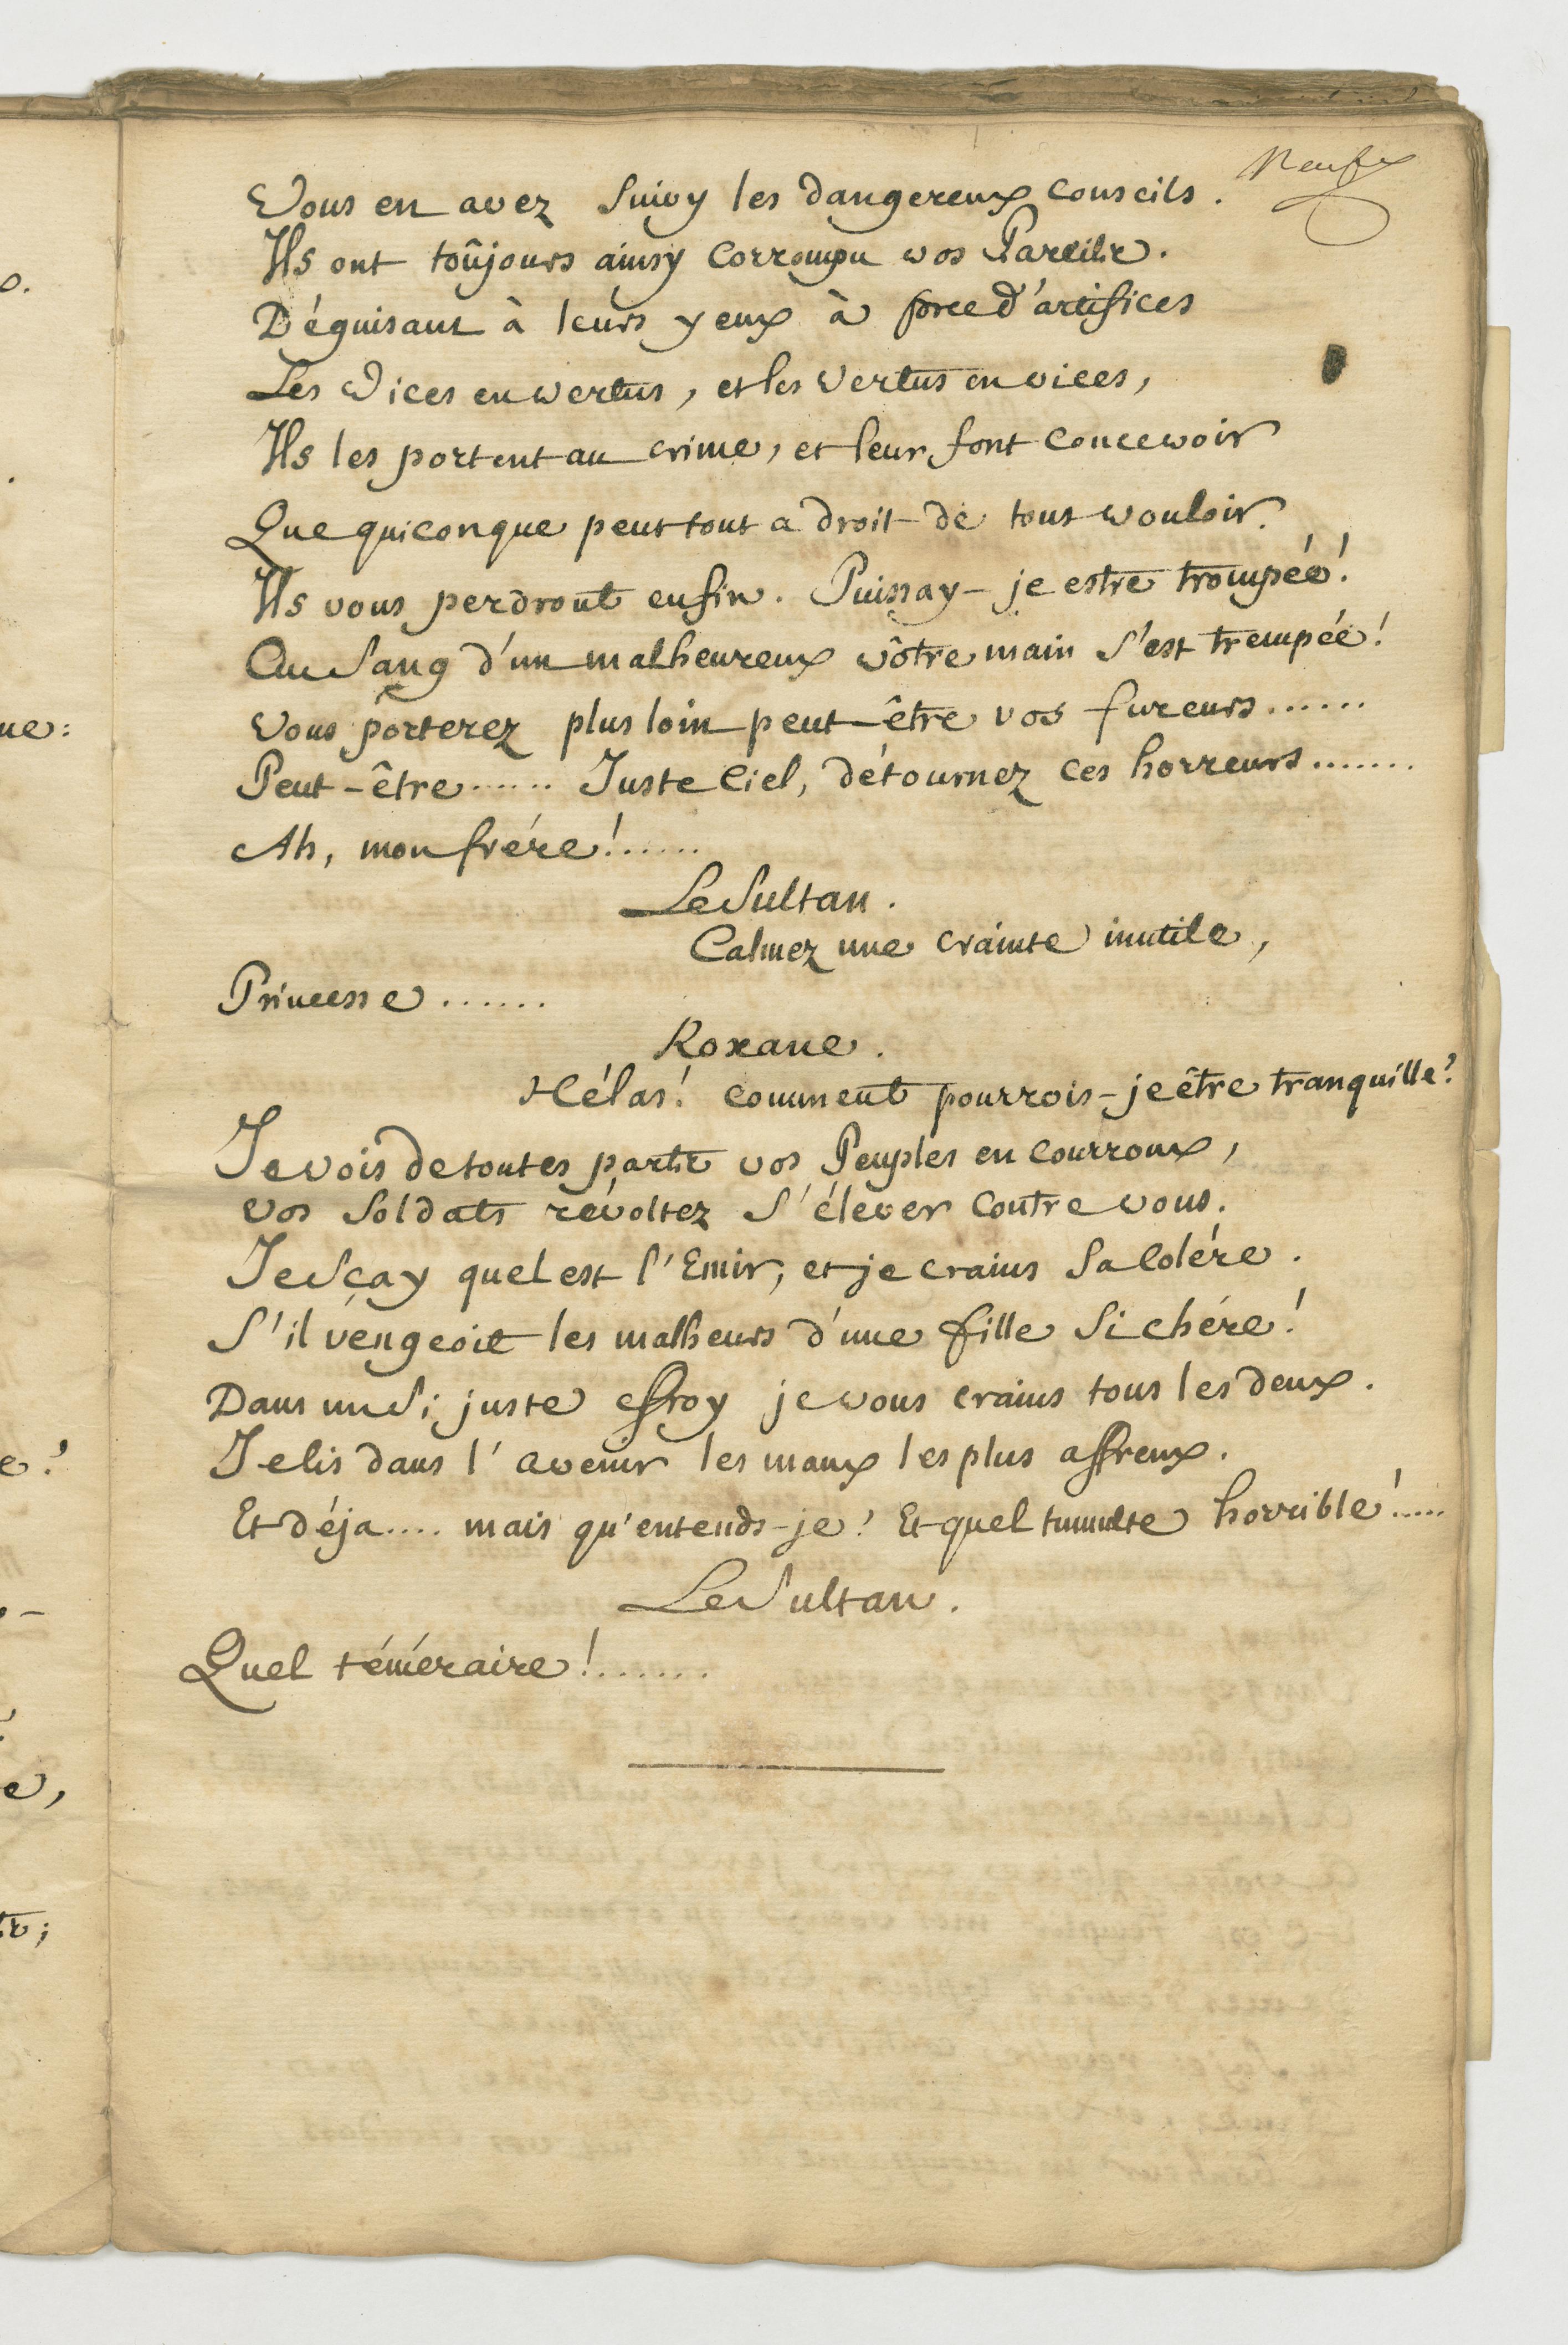 Neuf
Vous en avez Suivy les dangereux conseils.
Ils ont toûjours ainsy corrompu vos Pareils.
Déguisant à leurs yeux à force d'artifices
Les Vices en vertus, et les Vertus en vices,
Ils les portent au crime, et leur font concevoir
Que quiconque peut tout a droit de tout vouloir.
Ils vous perdront enfin. Puissay-je estre trompée!
Au Sang d'un malheureux vôtre main S'est trempée!
Vous porterez plus loin peut-être vos fureurs......
Peut-être...... Juste Ciel, détournez ces horreurs.......
Ah, mon frére!......
Le Sultan.
Calmez une crainte inutile,
Princesse......
Roxane.
Hélas! comment pourrois-je être tranquille?
Je vois de toutes parts vos Peuples en courroux,
Vos Soldats révoltez S'élever contre vous.
Je Sçay quel est l'Emir, et je crains Sa Colére.
S'il véngeoit les malheurs d'une fille Si chére!
Dans un Si juste effroy je vous crains tous les deux.
Je lis dans l'avenir les maux les plus affreux.
Et déja.... mais qu'entends-je? Et quel tumulte horrible!.....
Le Sultan.
Quel téméraire!.......